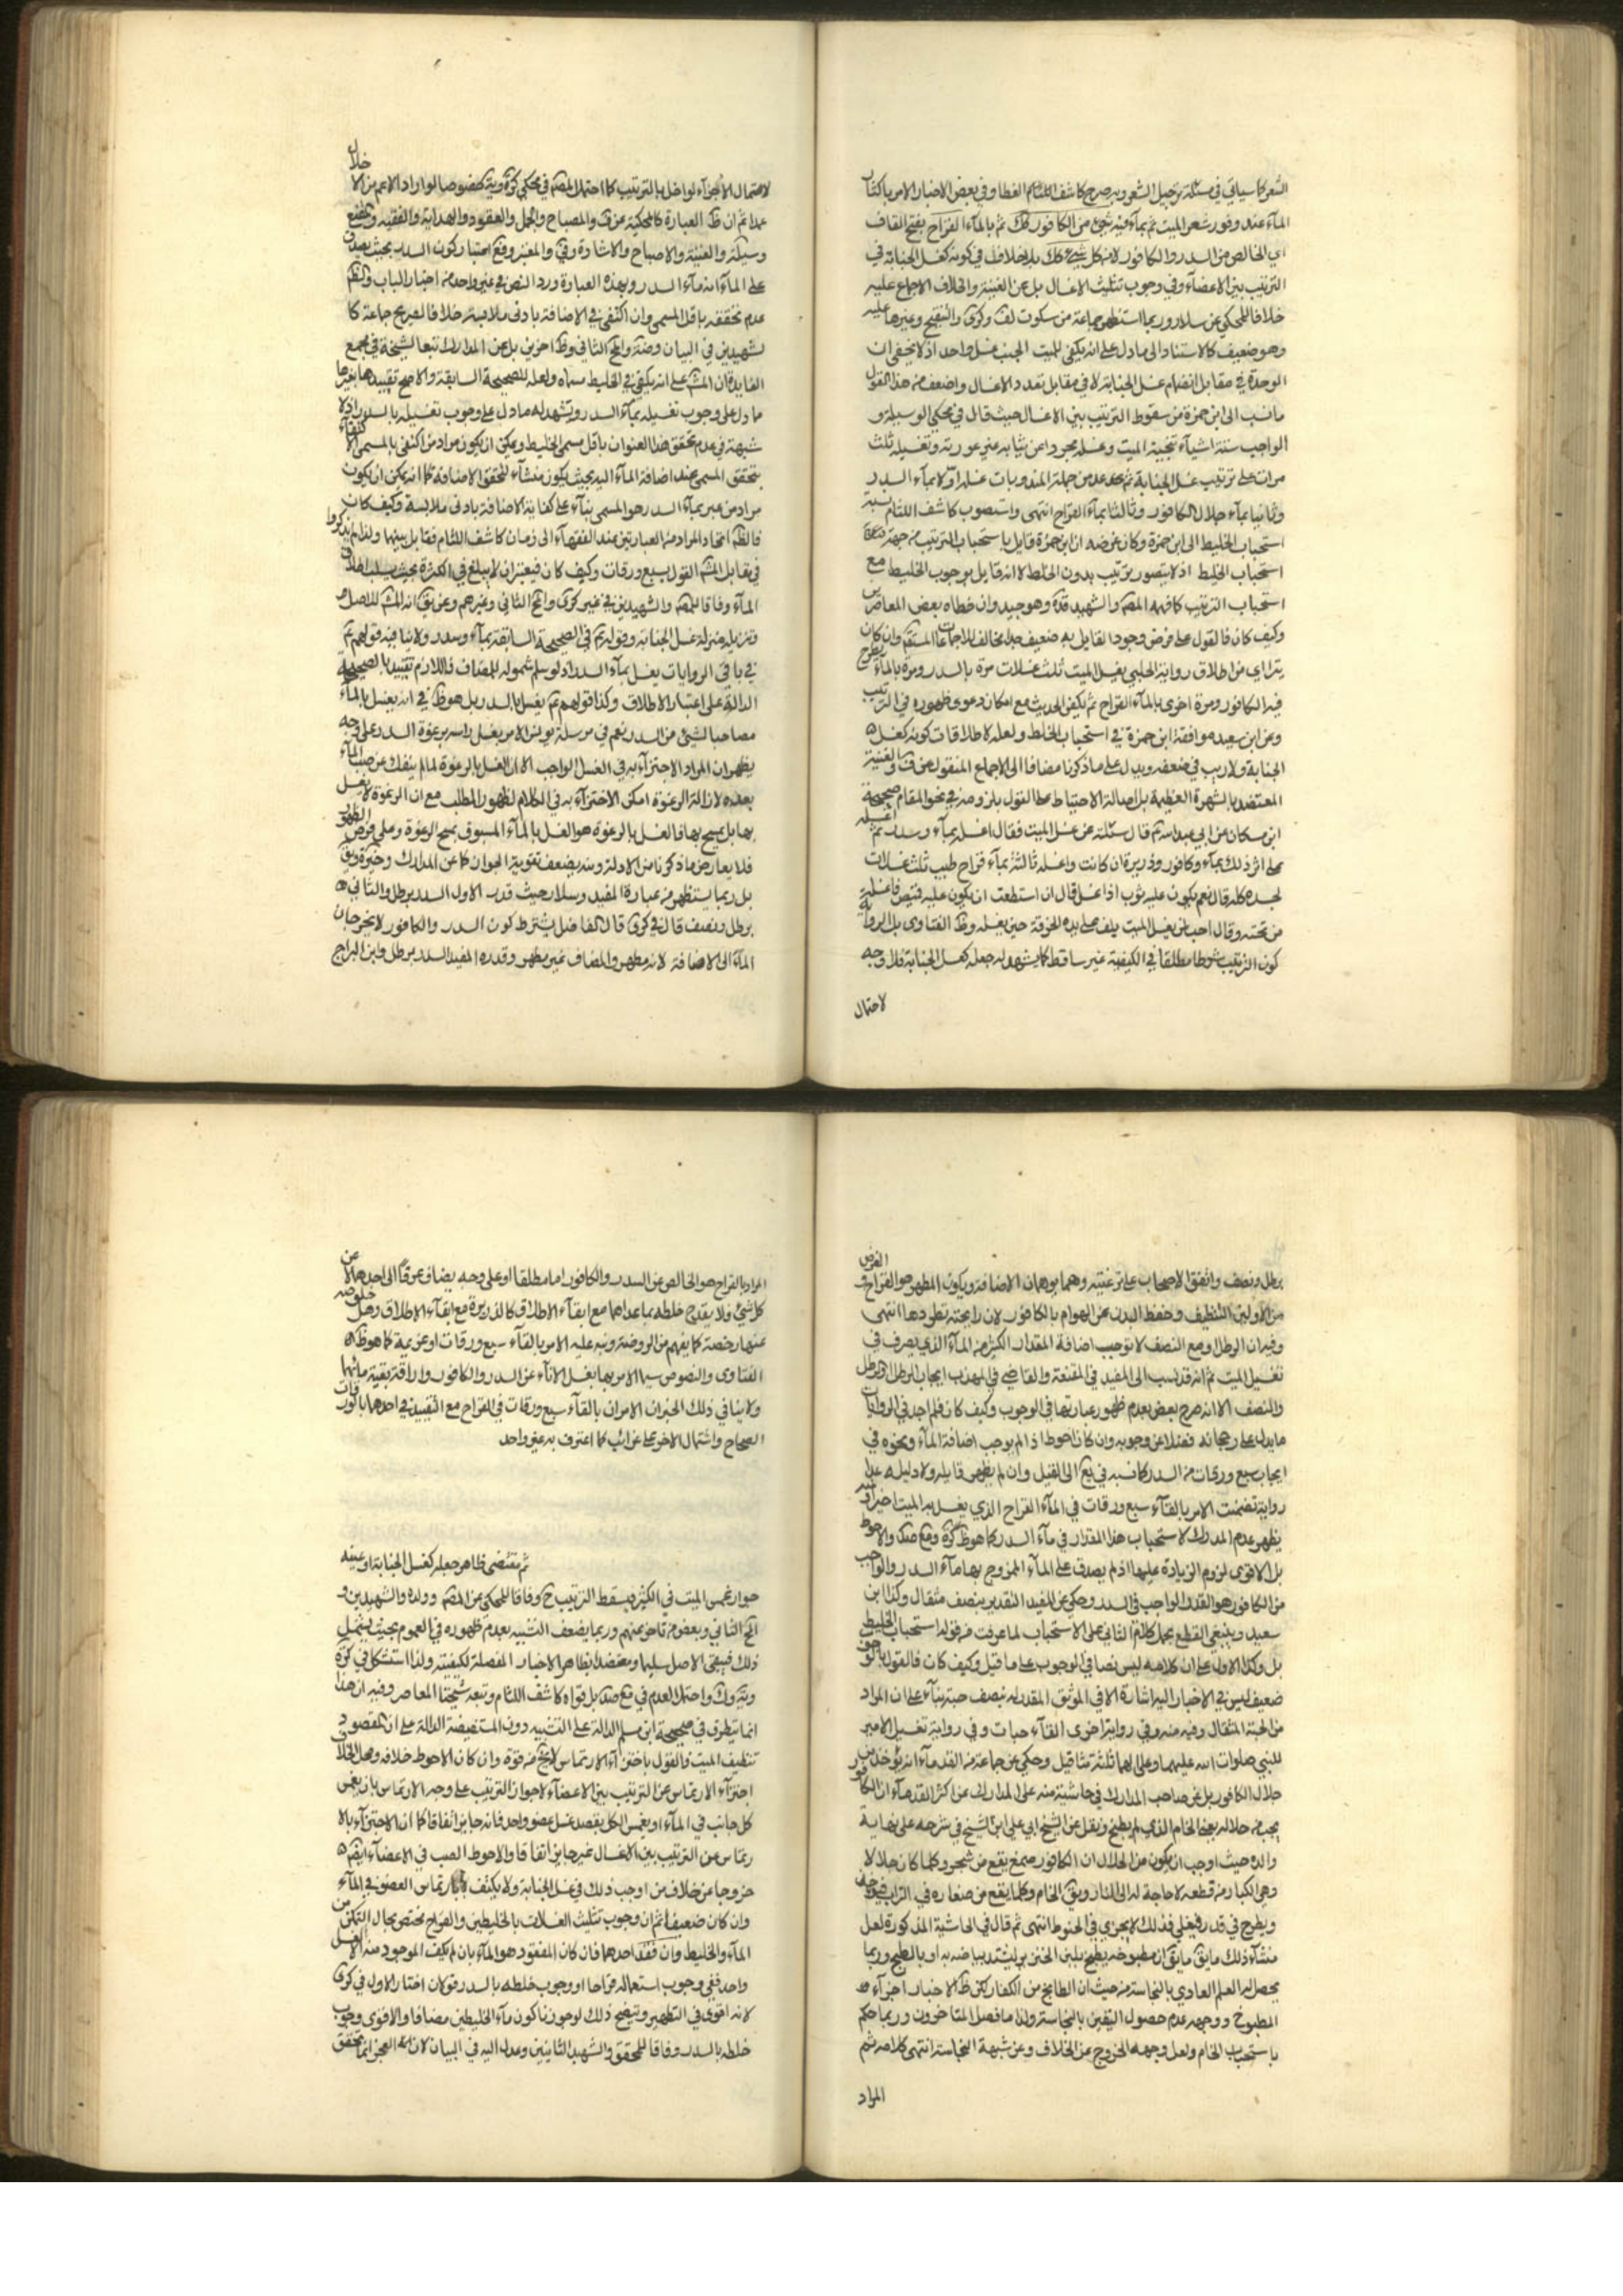 الشعر كما سيأتي في مسئلة ترجيل الشعر وبه صرح كاشف اللثام الغطا وفي بعض الاخبار الامر باكثار
المآء عند وفور شعر الميت ثم بمآء فيه شيء من الكافور كك ثم بالمآء القراح بفتح القاف
اي الخالص من السدر والكافور لا من كل شيء كك بلا خلاف في كونه كغسل الجنابة في
الترتيب بين الاعضآء وفي وجوب تثليث الاغسال بل عن الغنية والخلاف الاجماع عليه
خلافا للمحكي عن سلار وربما استظهر جماعة من سكوت لف وكرى والتنقيح وغيرها عليه
وهو ضعيف كالاستناد الى ما دل على انه يكفي للميت الجنب غسل واحد اذ لا يخفى ان
الوحدة في مقابل انضمام غسل الجنابة لا في مقابل تعدد الاغسال واضعف من هذا القول
ما نسب الى ابن حمزة من سقوط الترتيب بين الاغسال حيث قال في محكي الوسيلة و
الواجب ستة اشيآء تنجية الميت وغسله مجردا عن ثيابه غير عورته وتغسيله ثلث
مرات على ترتيب غسل الجنابة ثم عد من جملة المندوبات غسله اولا بمآء السدر
وثانيا بمآء جلال الكافور وثالثا بمآء القراح انتهى واستصوب كاشف اللثام نسبة
استحباب الخليط الى ابن حمزة وكان غرضه ان ابن حمزة قايل باستحباب الترتيب من جهة
استحباب الخليط اذ لا يتصور ترتيب بدون الخلط لا انه قايل بوجوب الخليط مع
استحباب الترتيب كما فهمه المصه والشهيد قده وهو جيد وان خطاه بعض المعاصرين
وكيف كان فالقول على فرض وجود القايل به ضعيف جدا مخالف للاجماعات المستقم وان كان
يتراى من اطلاق رواية الحلبي يغسل الميت ثلث غسلات مرة بالسدر ومرة بالمآء يطرح
فيه الكافور ومرة اخرى بالمآء القراح ثم يكفن الحديث مع امكان دعوى ظهوره في الترتيب
وعن ابن سعيد موافقة ابن حمزة في استحباب الخلط ولعله لاطلاقات كونه كغسل
الجنابة ولا ريب في ضعفه ويدل على ما ذكرنا مضافا الى الاجماع المنقول عن ف والغنية
المعتضد بالشهرة العظيمة بل اصالة الاحتياط على القول بلزومه في نحو المقام صحيحة
ابن مسكان عن ابي عبد الله ع قال سئلته عن غسل الميت فقال اغسله بمآء وسدر ثم اغسله
على اثر ذلك بمآء وكافور وذريرة ان كانت واغسله ثالثة بمآء قراح طيب ثلث غسلات
لجسده كله قال نعم يكون عليه ثوب اذا غسل قال ان استطعت ان يكون عليه قميص فاغسله
من تحته وقال احب لمن يغسل الميت يلف على يده الخرقة حين يغسله وظ الفتاوى بل الرواية
كون الترتيب شرطا مطلقا في الكيفية غير ساقط كما يشهد له جعله كغسل الجنابة فلا وجه
لاحتمال
لاحتمال الاجزآء لو اخل بالترتيب كما احتمله المصه في محكي كره وية خصوصا لو اراد الاعم من الاخلال
عمدا ثم ان ظ العبارة كالمحكية عن ف والمصباح والجمل والعقود والهداية والفقيه والمقنع
وسيلة والغنية والاصباح والاشارة وفي والمعتبر وقع اعتبار كون السدر بحيث يصدق
على المآء انه مآء السدر وبهذه العبارة ورد النص في غير واحد من اخبار الباب والظ
عدم تحققه باقل المسمى وان اكتفى في الاضافة بادنى ملابسة خلافا لصريح جماعة كا
لشهيدين في البيان وضة والمحقق الثاني وظ اخرين بل عن المدارك تبعا لشيخه في مجمع
الفايدة ان المشهور على انه يكفي في الخليط مسماه ولعله للصحيحة السابقة والاصح تقييدها بغيرها
ما دل على وجوب تغسيله بمآء السدر وتشهد له ما دل على وجوب تغسيله بالسدر اذ لا
شبهة في عدم تحقق هذا العنوان باقل مسمى الخليط ويمكن ان يكون مراد من اكتفى بالمسمى الاكتفآء
بتحقق المسمى عند اضافة المآء اليه بحيث يكون منشآء لتحقق الاضافة كما انه يمكن ان يكون
مراد من عبر بمآء السدر هو المسمى بنآء على كفاية الاضافة بادنى ملابسة وكيف كان
فالظ اتحاد المراد من العبارتين عند الفقهآء الى زمان كاشف اللثام فقابل بينهما ولذا لم يذكروا
في مقابل المشهور القول بسبع ورقات وكيف كان فيعتبر ان لا يبلغ في الكثرة بحيث يسلب اطلاق
المآء وفاقا للمصه والشهيدين في غير كرى والمحقق الثاني وغيرهم وعن يق انه المشهور للاصل و
تنزيله منزلة غسل الجنابة وقوله ع في الصحيحة السابقة بمآء وسدر ولا ينافيه قولهم ع
في باقي الروايات يغسل بمآء السدر اذ لو سلم شموله للمضاف فاللازم تقييده بالصحيحة
الدالة على اعتبار الاطلاق وكذا قولهم ع يغسل بالسدر بل هو ظ في انه يغسل بالمآء
مصاحبا لشيء من السدر نعم في مرسلة يونس الامر بغسل راسه برغوة السدر على وجه
يظهر ان المراد الاجتزآء به في الغسل الواجب الا ان الغسل بالرغوة لما لم ينفك عن صب المآء
بعده لازالة الرغوة امكن الاجتزآء به في الكلام لظهور المطلب مع ان الرغوة لا يغسل
بها بل يمسح بها فالغسل بالرغوة هو الغسل بالمآء المسبوق بمسح الرغوة وعلى فرض الظهور
فلا يعارض ما ذكرنا من الادلة ومنه يضعف تقوية الجواز كما عن المدارك وخيرة ويق
بل ربما يستظهر من عبارة المفيد وسلار حيث قدر الاول السدر برطل والثاني
برطل ونصف قال في كرى قال الفاضل يشترط كون السدر والكافور لا يخرجان
المآء الى الاضافة لانه مطهر والمضاف غير مطهر وقدره المفيد السدر برطل وابن البراج
برطل ونصف واتفق الاصحاب على ترغيته وهما يوهمان الاضافة ويكون المطهر هو القراح والغرض
من الاولين التنظيف وحفظ البدن من الهوام بالكافور لان رايحته تطردها انتهى
وفيه ان الرطل او مع النصف لا توجب اضافة المقدار الكثير من المآء الذي يصرف في
تغسيل الميت ثم انه قد نسب الى المفيد في المقنعة والقاضي في المهذب ايجاب الرطل او الرطل
والنصف الا انه صرح بعض بعدم ظهور عبارتها في الوجوب وكيف كان فلم اجد في الروايات
ما يدل على رجحانه فضلا عن وجوبه وان كان احوط اذا لم يوجب اضافة المآء ونحوه في
ايجاب سبع ورقات من السدر كما نسبه في يع الى القيل وان لم يظهر قايله ولا دليله عدا
رواية تضمنت الامر بالقآء سبع ورقات في المآء القراح الذي يغسل به الميت اخيرا ومنه
يظهر عدم المدرك لاستحباب هذا المقدار في مآء السدر كما هو ظ كره وقع صد والاحوط
بل الاقوى لزوم الزيادة عليها اذ لم يصدق على المآء الممزوج بها مآء السدر والواجب
من الكافور هو القدر الواجب في السدر وحكي عن المفيد التقدير بنصف مثقال وكذا ابن
سعيد وينبغي القطع بحمل كلام الثاني على الاستحباب لما عرفت من قوله استحباب الخليط
بل وكذا الاول على ان كلامه ليس نصا في الوجوب على ما قيل وكيف كان فالقول بالوجوب
ضعيف ليس في الاخبار اليه اشارة الا في الموثق المقدر له بنصف حبة بنآء على ان المراد
من الحبة المثقال وفيه منه وفي رواية اخرى القآء حبات وفي رواية تغسيل الامير
للنبي صلوات الله عليهما وعلى الهما ثلثة مثاقيل وحكي عن جماعة من القدمآء انه يؤخذ من
جلال الكافور بل عن صاحب المدارك في حاشية منه على المدارك عن اكثر القدمآء ان الكافور
يجب من جلاله يعني الخام الذي لم يطبخ ونقل عن الشيخ ابي علي ابن الشيخ في شرحه على نهاية
والده حيث اوجب ان يكون من الجلال ان الكافور صمغ يقع من شجر وكلما كان جلالا
وهي الكبار من قطعه لا حاجة له الى النار ويق الخام وكلما يقع من صغاره في التراب فيؤخذ
ويطرح في قدر ويغلي فذلك لا يجزي في الحنوط انتهى ثم قال في الحاشية المذكورة لعل
منشآء ذلك ما يق ما يق ان مطبوخه يطبخ بلبن الخنزير ليشتد بياضه به او بالطبخ وربما
يحصل له العلم العادي بالنجاسة من حيث ان الطابخ من الكفار لكن ظ الاخبار اجزآء
المطبوخ ووجهه عدم حصول اليقين بالنجاسة ولذا ما فصل المتاخرون وربما حكم
باستحباب الخام ولعل وجهه الخروج عن الخلاف وعن شبهة النجاسة انتهى كلامه ثم
المراد
المراد بالقراح هو الخالص من السدر والكافور اما مطلقا او على وجه يضاف عرفا الى احدهما لا عن
كل شيء ولا يقدح خلطه بما عداهما مع ابقآء الاطلاق كالذريرة مع ابقآء الاطلاق وهل خلوصه
عنهما رخصة كما يفهم من الروضة ونبه عليه الامر بالقاء سبع ورقات او عزيمة كما هو ظ
الفتاوى والنصوص سيما الامر بها بغسل الانآء عن السدر والكافور واراقة بقية مائها
ولا ينافي ذلك الخبران الامران بالقآء سبع ورقات في القراح مع التقييد في احدهما بالورقات
الصحاح واشتمال الاخر على غرائب كما اعترف به غير واحد
ثم مقتضى ظاهر جعله كغسل الجنابة او عينه
جواز غمس الميت في الكثير ويسقط الترتيب ح وفاقا للمحكي عن المصه وولده والشهيدين و
المحقق الثاني وبعض من تاخر عنهم وربما يضعف التشبيه بعدم ظهوره في العموم بحيث يشمل
ذلك فيبقى الاصل سليما ومعتضدا بظاهر الاخبار المفصلة لكيفيته ولذا استشكل في كره
وية وك واحتمل العدم في قع صد بل قواه كاشف اللثام وتبعه شيخنا المعاصر وفيه ان هذا
انما يتطرق في صحيحة ابن مسلم الدالة على التشبيه دون المستفيضة الدالة على ان المقصود
تنظيف الميت والقول باجتزآء الارتماس لا يخ من قوة وان كان الاحوط خلافه ومحل الخلاف
اجتزآء الارتماس عن الترتيب بين الاعضآء لا جواز الترتيب على وجه الارتماس بان يغمس
كل جانب في المآء او يغمس الكل بقصد غسل عضو واحد فانه جايز اتفاقا كما ان الاجتزآء بالا
رتماس عن الترتيب بين الاغسال غير جايز اتفاقا والاحوط الصب في الاعضآء ايضا
خروجا عن خلاف من اوجب ذلك في غسل الجنابة ولا يكتف بارتماس العضو في المآء
وان كان ضعيفا ثم ان وجوب تثليث الغسلات بالخليطين والقراح مختص بحال التمكن من
المآء والخليط وان فقد احدهما فان كان المفقود هو المآء بان لم يكف الموجود منه الا لغسل
واحد ففي وجوب استعماله قراحا او وجوب خلطه بالسدر قولان اختار الاول في كرى
لانه اقوى في التطهير وتنقيح ذلك لو جوزنا كون مآء الخليطين مضافا والاقوى وجوب
خلطه بالسدر وفاقا للمحقق والشهيد الثانيين وعدل اليه في البيان لان العجز انما تحقق